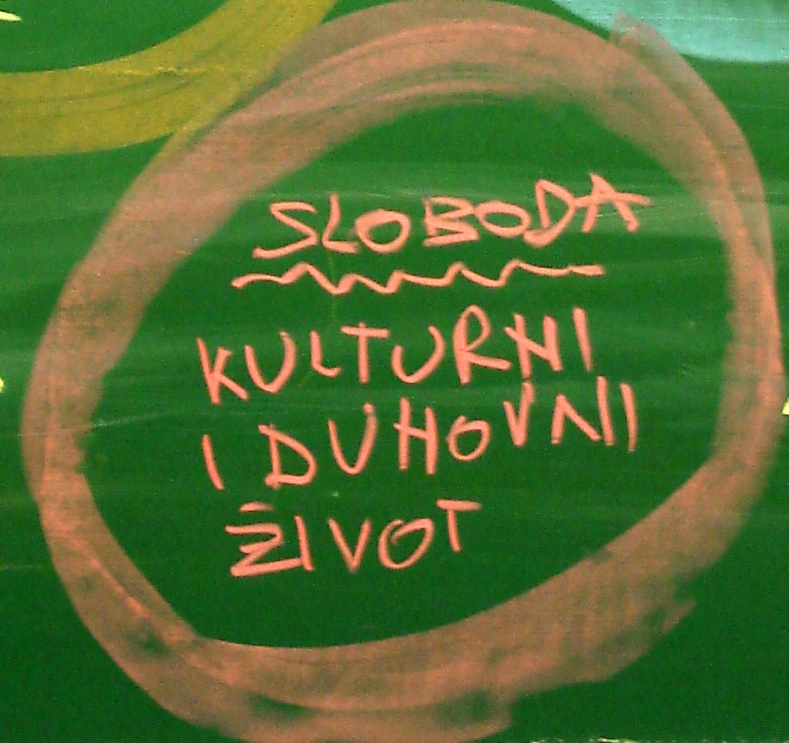 SLOBODA
KULTURNI
I DUHOVNI
ŽIVOT